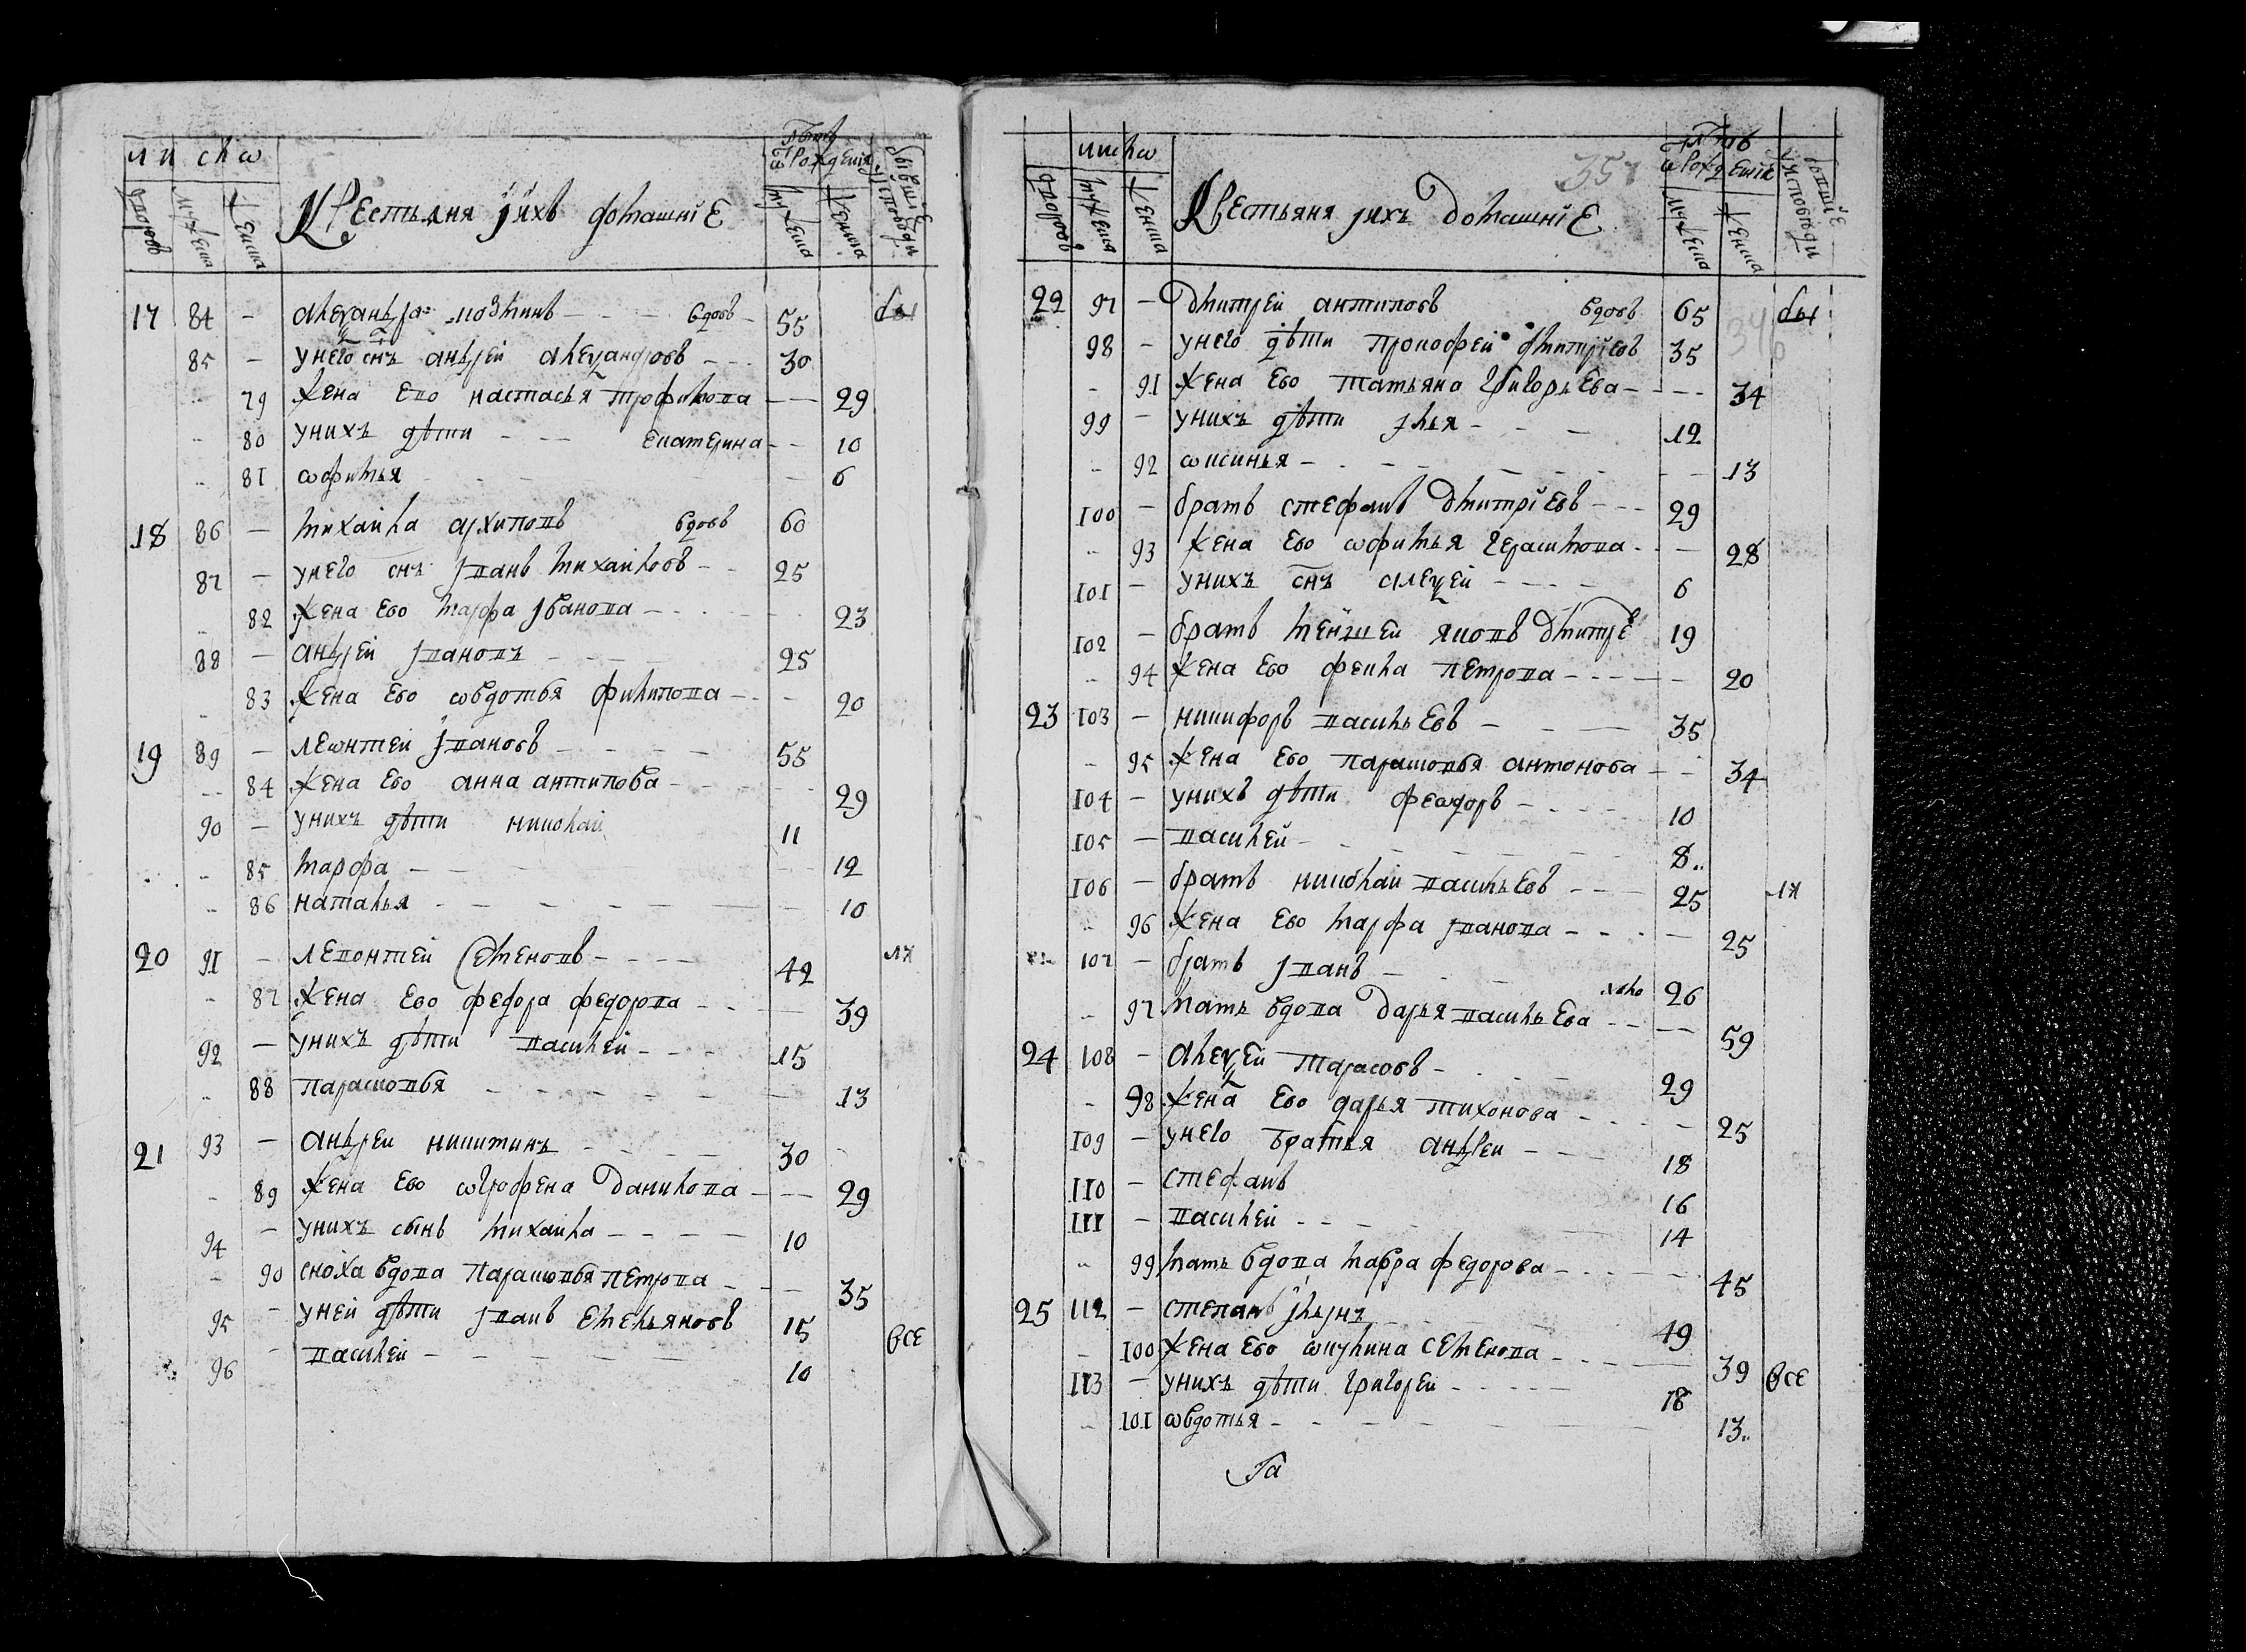 числа
дворовъ мужеска женска
Крестьяня ихъ домашніе
Лѣта ѿ рожденія
мужеска женска
бывшіе у исповѣди
17 84 — алеѯандра козминъ — вдовъ — 55 бы
85 — унего снъ андрей алеѯандровъ — 30
79 жена ево настасья трофимова — 29
80 унихъ дѣти — екатерина — 10
81 ѡфимья — 6
18 86 — михаила архиповъ вдовъ 60
87 — унего снъ иванъ михаиловъ — 25
82 жена ево марфа иванова — 23
88 — андрей ивановъ — 25
83 жена ево ѡвдотья филипова — 20
19 89 — леѡнтей ивановъ — 55
84 жена ево анна антипова — 29
90 — унихъ дѣти николай 11
85 марфа — 12
86 наталья — 10
20 91 — левонтей семеновъ — 42 лѧ
87 жена ево федора федорова — 39
92 — унихъ дѣти василей — 15
88 парасковья — 13
21 93 — андрей никитинъ — 30
89 жена ево ѡгрофена данилова — 29
94 — унихъ сынъ михаила — 10
90 сноха вдова парасковья петрова — 35
95 — уней дѣти иванъ емельяновъ 15 все
96 — василей — 10
числа
дворовъ мужеска женска
Крестьяня ихъ домашніе
357
Лѣтъ ѿ рожденія
мужеска женска
бывшіе у исповѣди
22 97 — дмитрей антиповъ вдовъ 65 бы
346
98 — унего дѣти прокофей дмитріевъ 35
91 жена ево татьяна григорьева — 34
99 — унихъ дѣти илья — 12
92 ѡксинья — 13
100 — братъ стефанъ дмитріевъ — 29
93 жена ево ѡфимья герасимова — 28
101 — унихъ снъ алеѯей — 6
102 — братъ меншей яковъ дмитрѐ 19
94 жена ево фекла петрова — 20
23 103 — никифоръ васильевъ — 35
95 жена ево парасковья антонова — 34
104 — унихъ дѣти феѡдоръ — 10
105 — василей — 8
106 — братъ николай васильевъ — 25 лѧ
96 жена ево марфа иванова — 25
107 — братъ иванъ — 26
97 мать вдова дарья васильева — 59
24 108 — алеѯей тарасовъ — 29
98 жена ево дарья тихонова — 25
109 — унего братья андрей — 18
110 — стефанъ 16
111 — василей — 14
99 мать вдова марфа федорова — 45
25 112 — степанъ ильинъ 49
100 жена ево ѡкулина семенова — 39 все
113 — унихъ дѣти григорей — 18
101 ѡвдотья — 13
Га